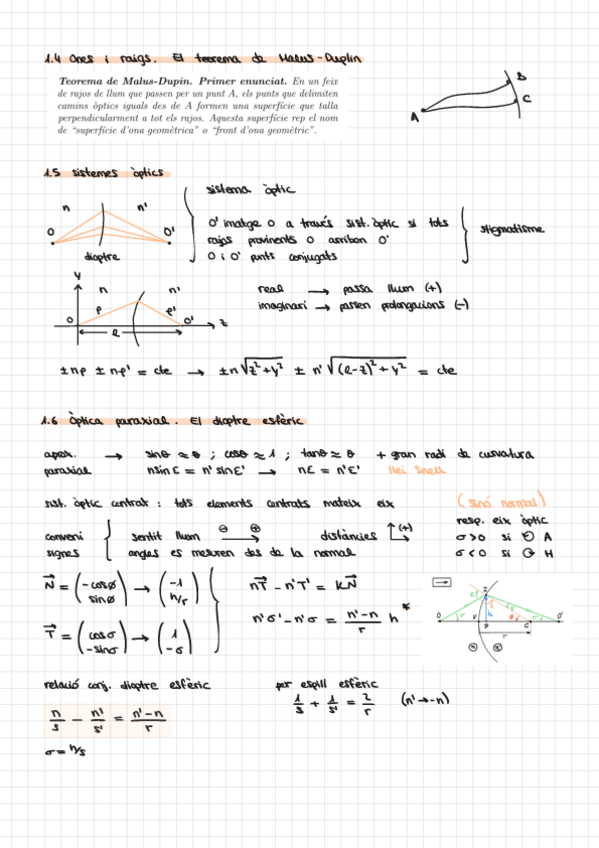 1.4 Ones i raigs. El teorema de Malus-Duplin
Teorema de Malus-Dupin. Primer enunciat. En un feix
de rajos de llum que passen per un punt A, els punts que delimiten
camins òptics iguals des de A formen una superfície que talla
perpendicularment a tot els rajos. Aquesta superfície rep el nom
de "superfície d'ona geomètrica" o "front d'ona geomètric".
A
B
C
1.5 sistemes òptics
n n'
O O'
dioptre
sistema òptic
O' imatge O a través sist. òptic si tots
rajos provinents O arriben O'
O i O' punts conjugats
stigmatisme
y
n n'
ρ ρ'
O O' z
e
real → passa llum (+)
imaginari → passen prolongacions (-)
±nρ ± nρ' = cte → ±n√(z²+y²) ± n'√((e-z)²+y²) = cte
1.6 Òptica paraxial. El dioptre esfèric
aprox. → sinθ ≈ θ ; cosθ ≈ 1 ; tanθ ≈ θ + gran radi de curvatura
paraxial nsinε = n'sinε' → nε = n'ε' llei Snell
sist. òptic centrat : tots elements centrats mateix eix
conveni
signes
sentit llum ⊖ ⊕ → distàncies (+)
angles es mesuren des de la normal
(sinó normal)
resp. eix òptic
σ>0 si A
σ<0 si H
N = (-cosø sinø) → (-1 h/r)
T = (cosσ -sinσ) → (1 -σ)
nT - n'T' = kN
n'σ' - n'σ = (n'-n)/r h *
O V P C O'
I
h
r
relació conj. dioptre esfèric
n/s - n'/s' = (n'-n)/r
σ = h/s
per espill esfèric
1/s + 1/s' = 2/r (n'→-n)